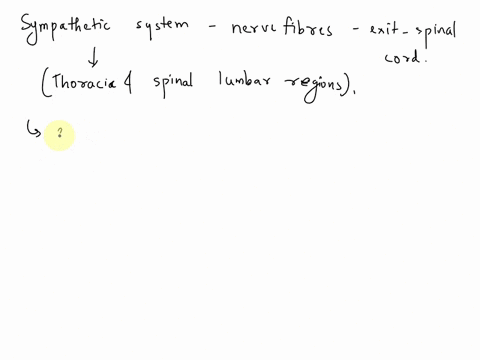 Sympathetic system - nerve fibres - exit - spinal
cord.
(Thoracic & spinal lumbar regions).
?